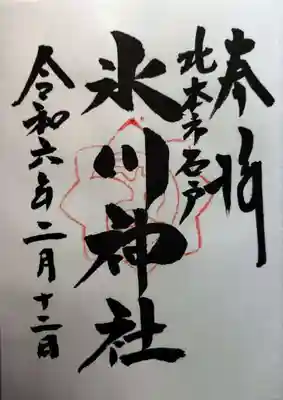 奉拝
北本市石戸
氷川神社
令和六年二月十二日